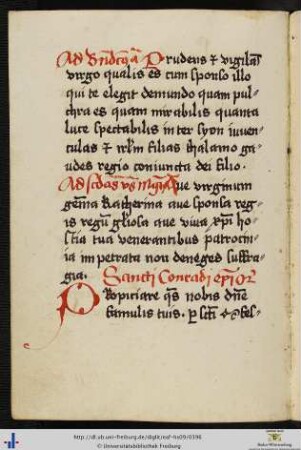 Prudens et vigilās
virgo qualis es cum sponso illo
qui te elegit de mundo quam pul-
chra es quam mirabilis quanta
luce spectabilis inter syon iuuen-
culas et irlm filias thalamo ga-
udes regio coniuncta dei filio.
Aue virginum
gēma Katherina aue sponsa reg-
is regū gloiosa aue viua xpi ho-
stia tua venerantibus patrocin-
ia impetrata non deneges suffra-
gia. Sancti Conradi epi or
Propiciare qs nobis dne
famulis tuis. p scti
http://dl.ub.uni-freiburg.de/diglit/
© Universitätsbibliothek Freiburg
Baden-Württemberg